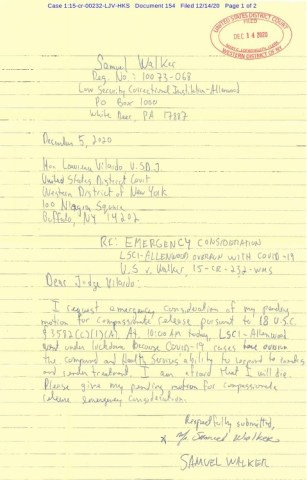 Case 1:15-cr-00232-LJV-HKS Document 154 Filed 12/14/20 Page 1 of 2
UNITED STATES DISTRICT COURT
FILED
DEC 14 2020
WESTERN DISTRICT OF NY
Samuel Walker
Reg. No.: 10073-068
Low Security Correctional Institution-Allenwood
PO Box 1000
White Deer, PA 17887
December 5, 2020
Hon. Lawrence Vilardo, U.S.D.J.
United States District Court
Western District of New York
100 Niagara Square
Buffalo, NY 14202
RE: EMERGENCY CONSIDERATION
LSCI-ALLENWOOD OVERRUN WITH COVID-19
U.S v. Walker 15-CR-232-
Dear Judge Vilardo:
I request emergency consideration of my pending
motion for compassionate release pursuant to 18 U.S.C.
§ 3582(c)(1)(A). At 10:00 AM today, LSCI-Allenwood
went under lockdown because COVID-19 cases have overrun
the compound and Health Services ability to respond to
and render treatment. I am afraid that I will die.
Please give my pending motion for compassionate
release emergency consideration.
Respectfully submitted,
Samuel Walker
SAMUEL WALKER